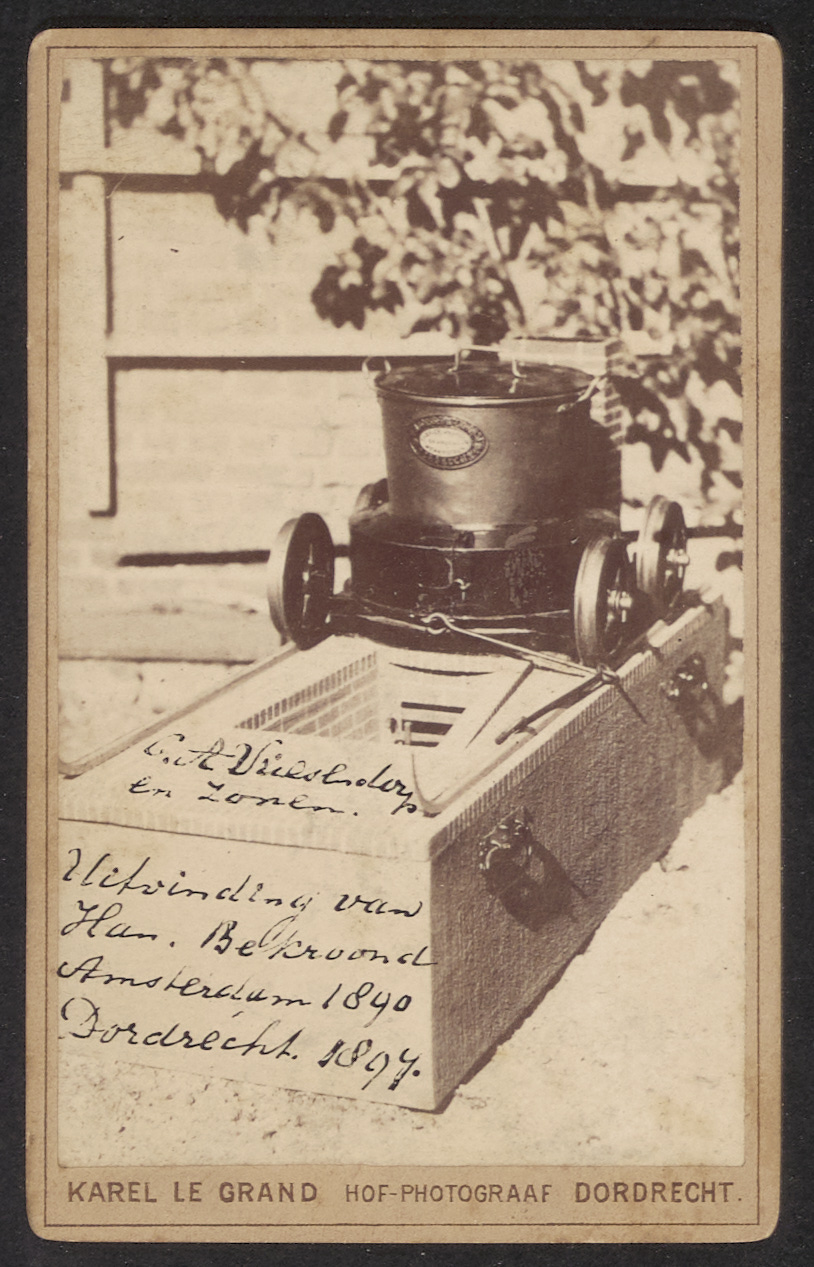 C. A Vriesendorp
en Zonen.
Uitvinding van
Han. Bekroond
Amsterdam 1890
Dordrecht. 1897.
KAREL LE GRAND HOF-PHOTOGRAAF DORDRECHT.